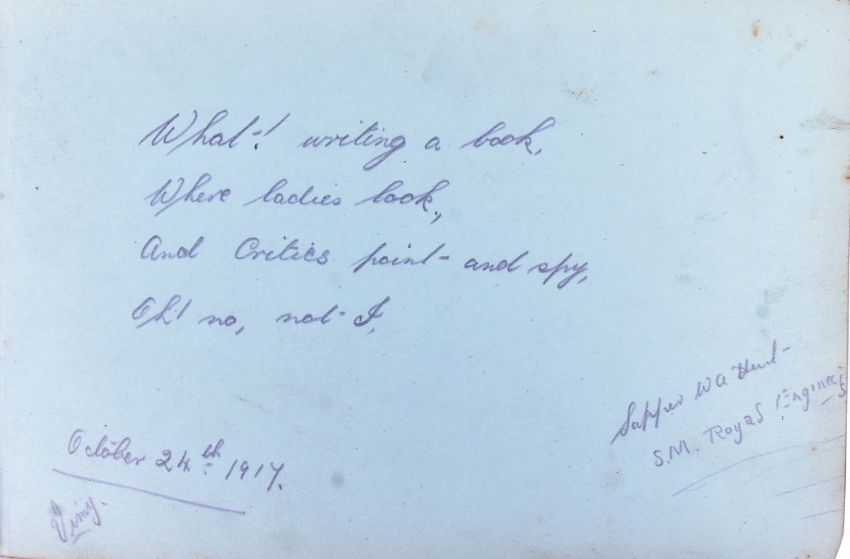 What-! writing a book,
Where ladies look,
And Critics point- and spy,
Oh! no, not I,
Sapper W A Hunt
S.M. Royal Engineers
October 24th 1917.
Vimy.